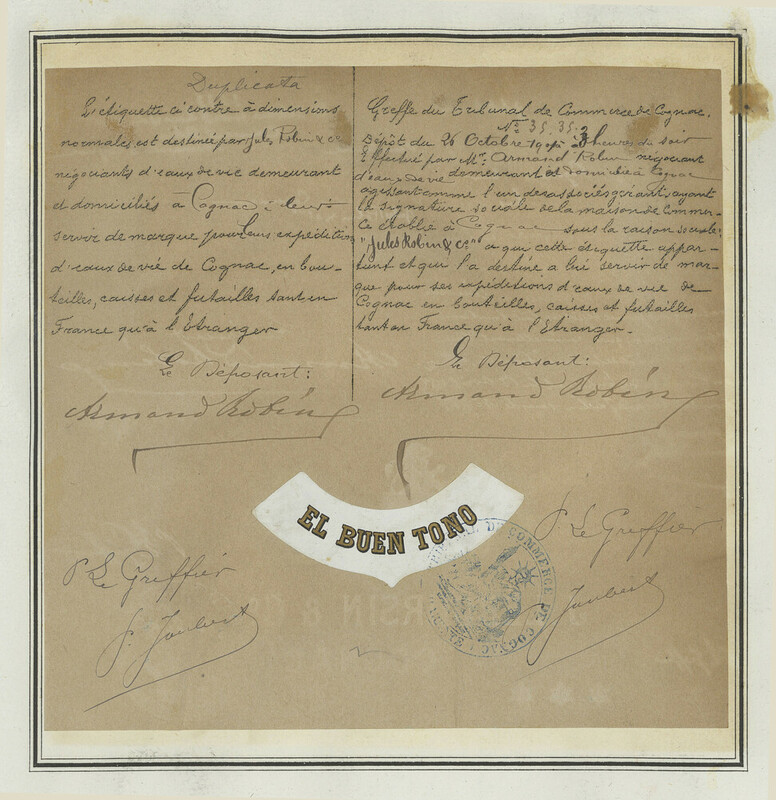 Duplicata
L'étiquette ci contre à dimensions
normales est destinée par Jules Robin & Cie
négociants d'eaux de vie demeurant
et domiciliés à Cognac à leur
servir de marque pour leurs expéditions
d'eaux de vie de Cognac, en bou-
teilles, caisses et futailles tant en
France qu'à l'Etranger
Le Déposant:
Armand Robin
Greffe du Tribunal de Commerce de Cognac.
No 35.35.
Dépôt du 26 Octobre heures du soir
Effectué par Mr. Armand Robin négociant
d'eaux de vie demeurant et domicilié à Cognac
agissant comme l'un des associés gérants, ayant
la signature sociale de la maison de Commer-
ce établie à Cognac sous la raison sociale:
"Jules Robin & Co" à qui cette étiquette appar-
tient et qui l'a destine a lui servir de mar-
que pour ses expéditions d'eaux de vie de
Cognac en bouteilles, caisses et futailles
tant en France qu'à l'Etranger.
Le Déposant:
Armand Robin
EL BUEN TONO
P. Le Greffier
Joubert
P. Le Greffier
Joubert
DE COMMERCE DE COGNAC